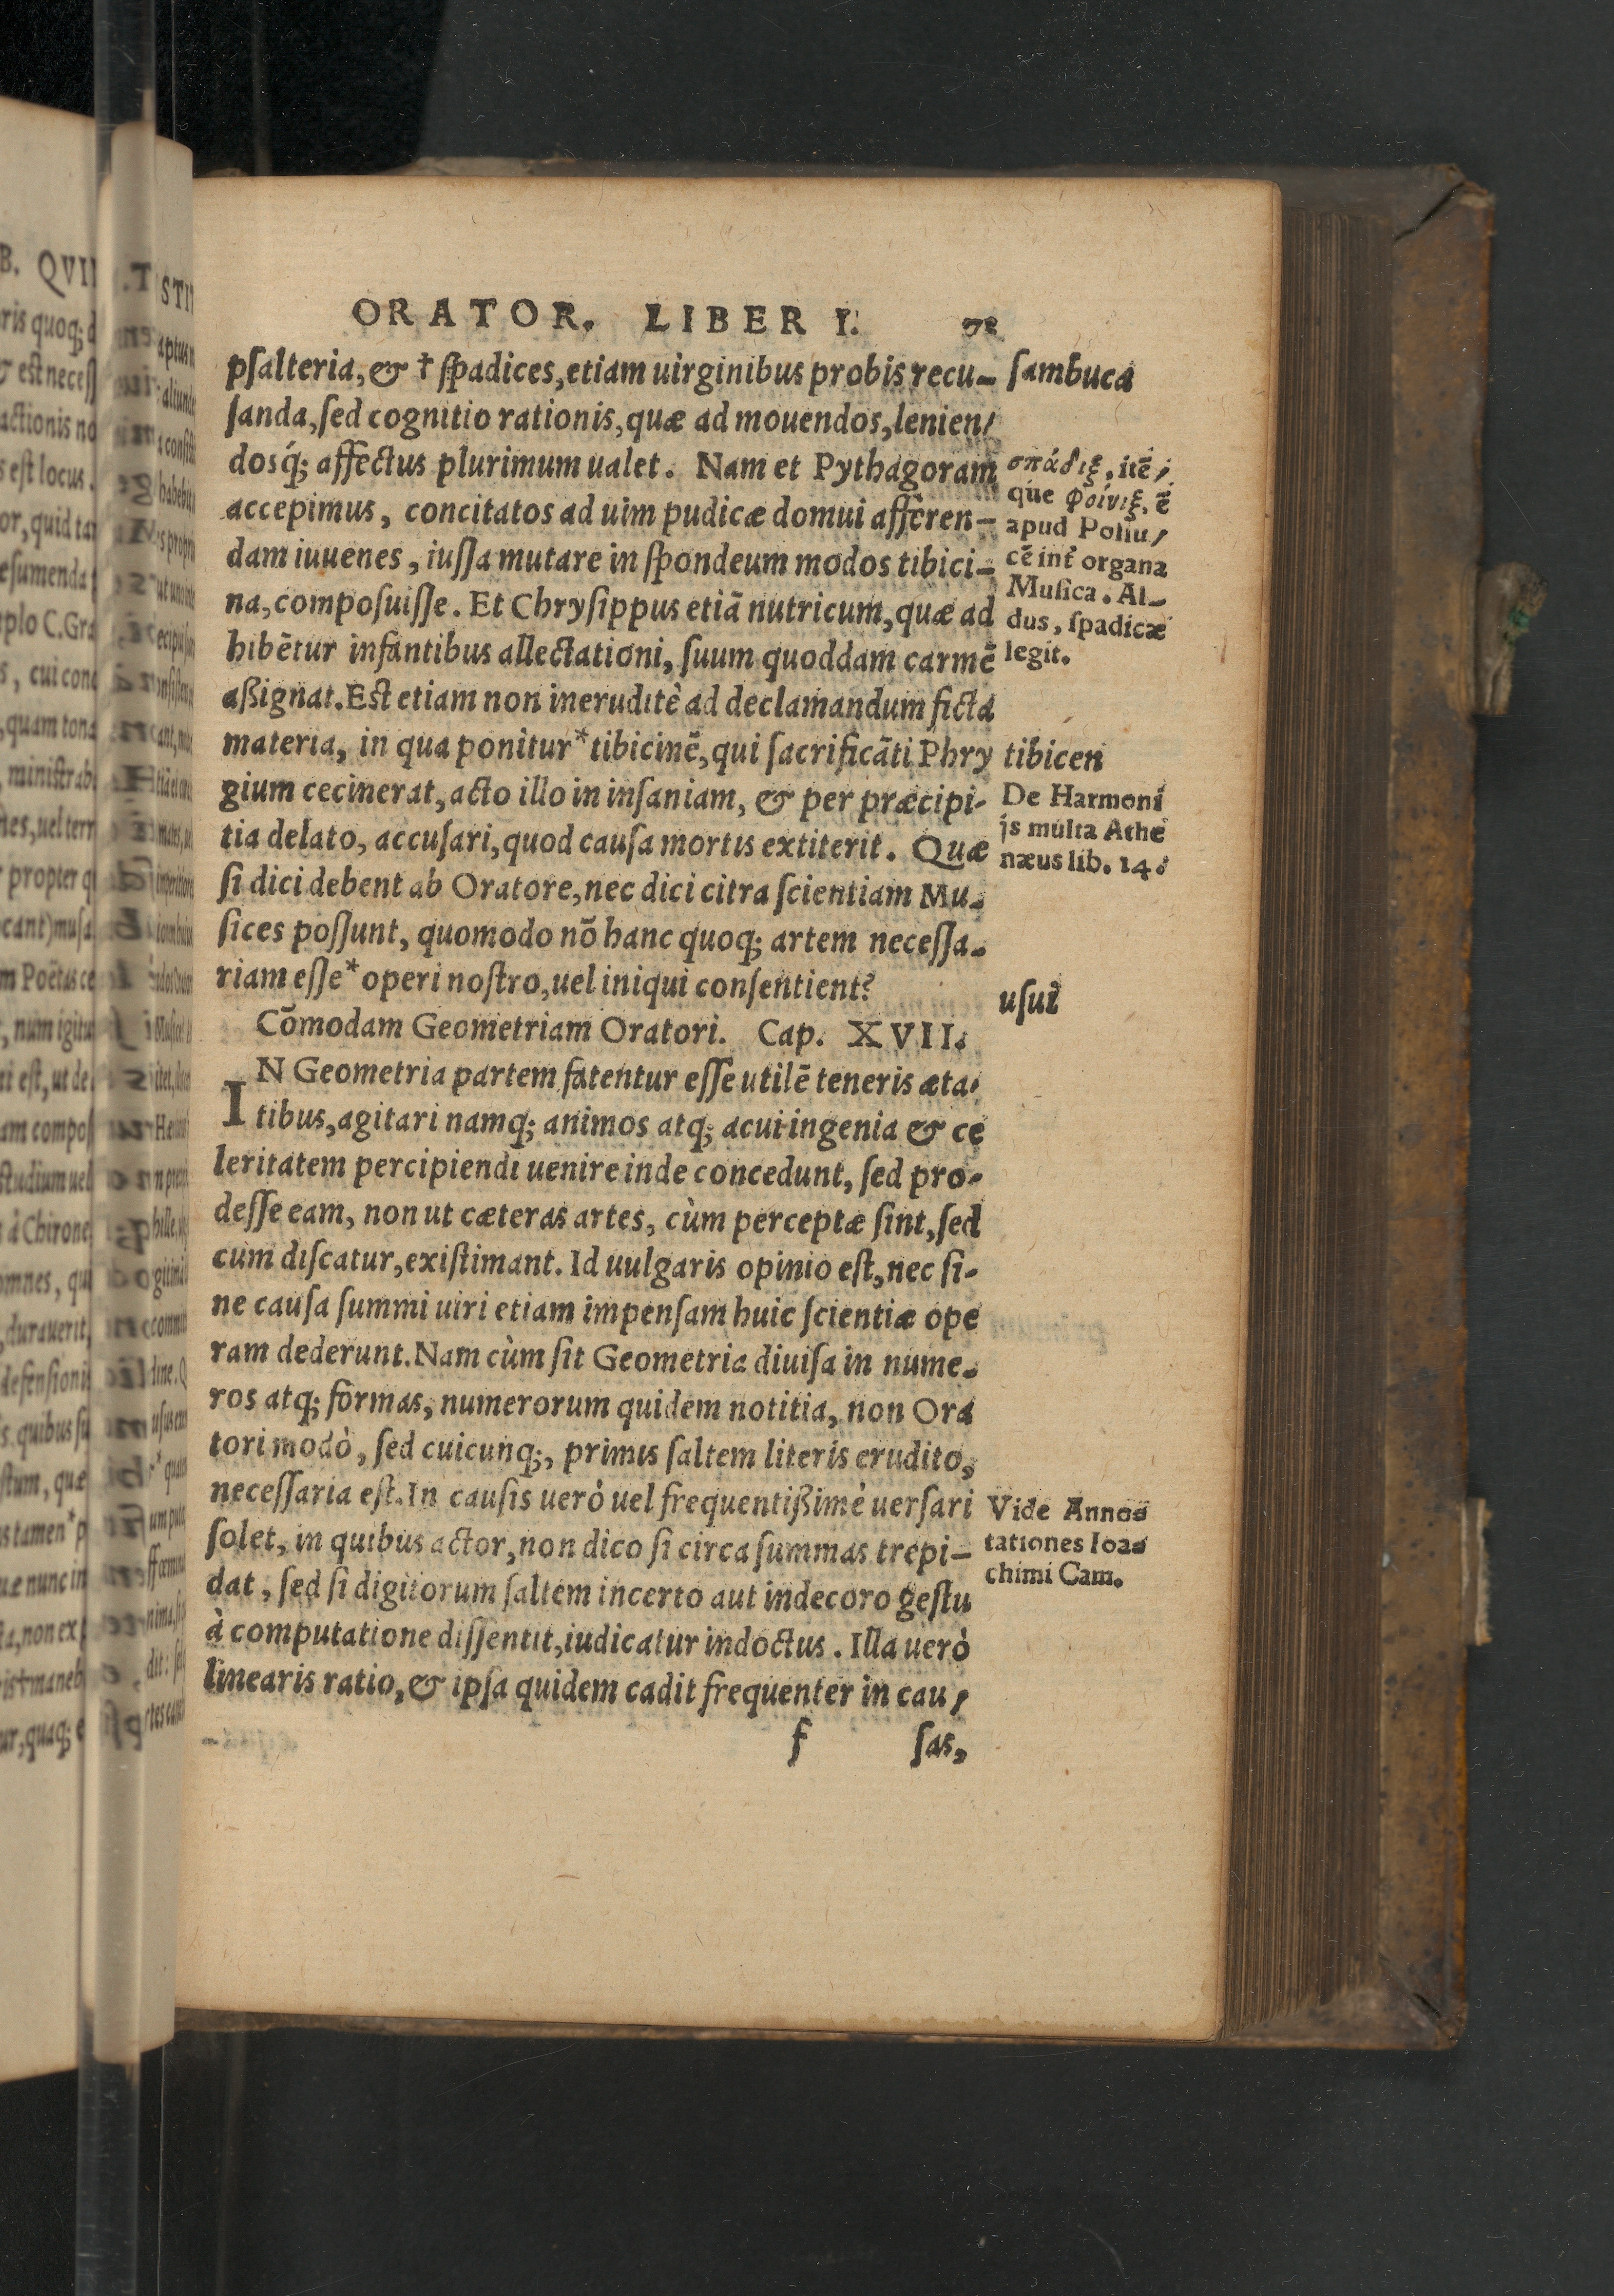 ORATOR. LIBER I.
psalteria, & † spadices, etiam uirginibus probis recu-
sanda, sed cognitio rationis, quæ ad mouendos, lenien/
dosq́; affectus plurimum ualet. Nam et Pythagoram
accepimus, concitatos ad uim pudicæ domui afferen-
dam iuuenes, iussa mutare in spondeum modos tibici-
na, composuisse. Et Chrysippus etiā nutricum, quæ ad
hibētur infantibus allectationi, suum quoddam carmē
aßignat. Est etiam non ineruditè ad declamandum ficta
materia, in qua ponitur * tibicinē, qui sacrificāti Phry
gium cecinerat, acto illo in insaniam, & per præcipi-
tia delato, accusari, quod causa mortis extiterit. Quæ
si dici debent ab Oratore, nec dici citra scientiam Mu-
sices possunt, quomodo nō hanc quoq; artem necessa-
riam esse * operi nostro, uel iniqui consentient?
Cōmodam Geometriam Oratori. Cap. XVII.
IN Geometria partem fatentur esse utilē teneris æta-
tibus, agitari namq; animos atq; acui ingenia & ce
leritatem percipiendi uenire inde concedunt, sed pro-
desse eam, non ut cæteras artes, cùm perceptæ sint, sed
cum discatur, existimant. Id uulgaris opinio est, nec si-
ne causa summi uiri etiam impensam huic scientiæ ope
ram dederunt. Nam cùm sit Geometria diuisa in nume-
ros atq; formas, numerorum quidem notitia, non Ora
tori modò, sed cuicunq;, primis saltem literis erudito,
necessaria est. In causis uerò uel frequentißimè uersari
solet, in quibus actor, non dico si circa summas trepi-
dat, sed si digitorum saltem incerto aut indecoro gestu
à computatione dissentit, iudicatur indoctus. Illa uerò
linearis ratio, & ipsa quidem cadit frequenter in cau/
f sas,
sambuca
σπάδιξ, itē/
que φοίνιξ, ē
apud Pollu/
cē int̃ organa
Musica. Al-
dus, spadicæ
legit.
tibicen
De Harmoni
js multa Athe
næus lib. 14.
usui
Vide Anno-
tationes Ioa-
chimi Cam.